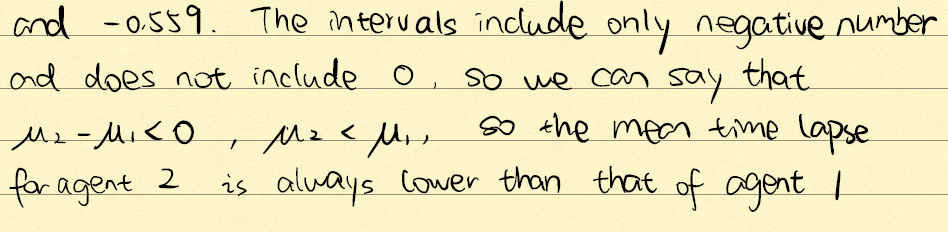 and -0.559. The intervals include only negative number
and does not include 0, so we can say that
μ₂-μ₁<0, μ₂<μ₁, so the mean time lapse
for agent 2 is always lower than that of agent 1